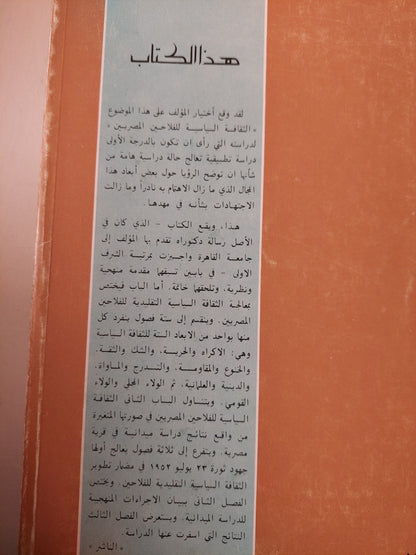 هذا الكتاب
لقد وقع أختيار المؤلف على هذا الموضوع
« الثقافة السياسية للفلاحين المصريين »
لدراسته التي رأى ان تكون بالدرجة الأولى
دراسة تطبيقية تعالج حالة دراسية هامة من
شأنها ان توضح الرؤيا حول بعض أبعاد هذا
المجال الذي ما زال الاهتمام به نادراً وما زالت
الاجتهادات بشأنه في مهدها .
هذا ، ويقع الكتاب - الذي كان في
الأصل رسالة دكتوراه تقدم بها المؤلف إلى
جامعة القاهرة واجيزت بمرتبة الشرف
الاولى - في بابين تسبقهما مقدمة منهجية
ونظرية ، وتلحقهما خاتمة . أما الباب فيختص
بمعالجة الثقافة السياسية التقليدية للفلاحين
المصريين . وينقسم إلى ستة فصول ينفرد كل
منها بواحد من الابعاد الستة للثقافة السياسية
وهي : الاكراه والحرية ، والشك والثقة ،
والخنوع والمقاومة ، والتدرج والمساواة ،
والدينية والعلمانية ، ثم الولاء المحلي والولاء
القومي . ويتناول الباب الثاني الثقافة
السياسية للفلاحين المصريين في صورتها المتغيرة
من واقع نتائج دراسة ميدانية في قرية
مصرية ، ويتفرع إلى ثلاثة فصول يعالج أولها
جهود ثورة ٢٣ يوليو ١٩٥٢ في مضمار تطوير
الثقافة السياسية التقليدية للفلاحين . ويختص
الفصل الثاني ببيان الاجراءات المنهجية
للدراسة الميدانية ، ويستعرض الفصل الثالث
النتائج التي اسفرت عنها الدراسة .
« الناشر »